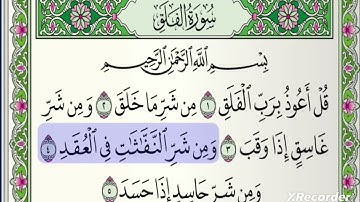 سُورَةُ الْفَلَقِ
بِسْمِ اللَّهِ الرَّحْمَٰنِ الرَّحِيمِ
قُلْ أَعُوذُ بِرَبِّ الْفَلَقِ ١ مِن شَرِّ مَا خَلَقَ ٢ وَمِن شَرِّ
غَاسِقٍ إِذَا وَقَبَ ٣ وَمِن شَرِّ النَّفَّاثَاتِ فِي الْعُقَدِ ٤
وَمِن شَرِّ حَاسِدٍ إِذَا حَسَدَ ٥
XRecorder